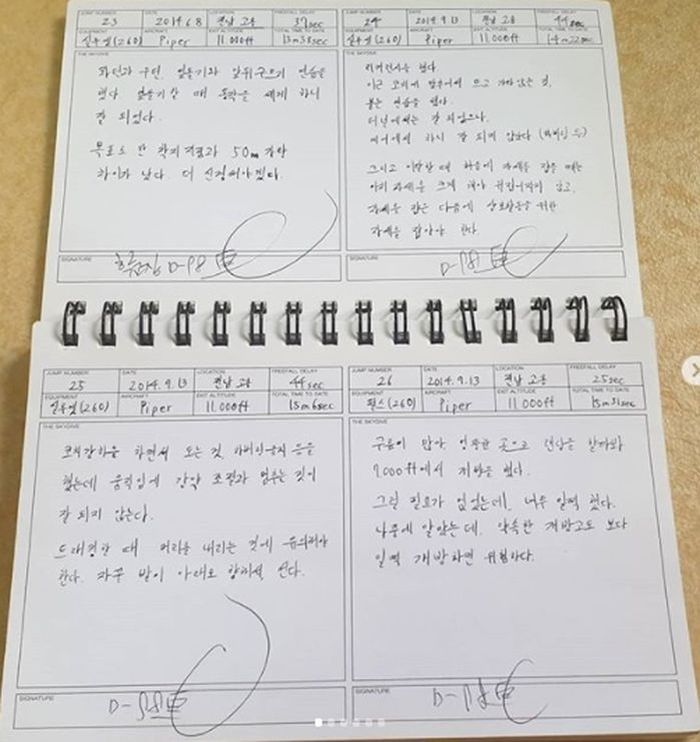 JUMP NUMBER DATE LOCATION FREEFALL DELAY
23 2014.6.8 전남 고흥 37sec
EQUIPMENT AIRCRAFT EXIT ALTITUDE TOTAL TIME TO DATE
(260) Piper 11.000ft 13m 38sec
THE SKYDIVE
턴과 앞뒤구르기 연습을
했다. 할 때 동작을 세게 하니
잘 되었다.
목표로 한 착지지점과 50m 가량
차이가 났다. 더 신경써야겠다.
SIGNATURE
JUMP NUMBER DATE LOCATION FREEFALL DELAY
24 2014.9.13 전남 고흥 44sec
EQUIPMENT AIRCRAFT EXIT ALTITUDE TOTAL TIME TO DATE
(260) Piper 11.000ft 14m 22sec
THE SKYDIVE
했다.
이근 코치에 맞추어 뜨고 가라앉는 것,
붙는 연습을 했다.
터널에서는 잘 되었으나,
에어에서 하니 잘 되지 않았다
그리고 이탈할 때 처음에 자세를 잡을 때는
자세를 크게 해야 하고,
자세를 잡은 다음에 위한
자세를 잡아야 한다.
SIGNATURE
JUMP NUMBER DATE LOCATION FREEFALL DELAY
25 2014.9.13 전남 고흥 44sec
EQUIPMENT AIRCRAFT EXIT ALTITUDE TOTAL TIME TO DATE
(260) Piper 11.000ft 15m 6sec
THE SKYDIVE
코치강하를 하면서 오는 것, 등을
했는데 움직임에 강약 조절과 멈추는 것이
잘 되지 않는다.
할 때 머리를 내리는 것에 유의해야
한다. 자꾸 발이 아래로 향하며 선다.
SIGNATURE
JUMP NUMBER DATE LOCATION FREEFALL DELAY
26 2014.9.13 전남 고흥 25sec
EQUIPMENT AIRCRAFT EXIT ALTITUDE TOTAL TIME TO DATE
(260) Piper 11.000ft 15m 31sec
THE SKYDIVE
구름이 많아, 엉뚱한 곳으로 랜딩을 할까봐
9000ft에서 개방을 했다.
그럴 필요가 없었는데, 너무 일찍 했다.
나중에 알았는데, 약속한 개방고도 보다
일찍 개방하면 위험하다.
SIGNATURE